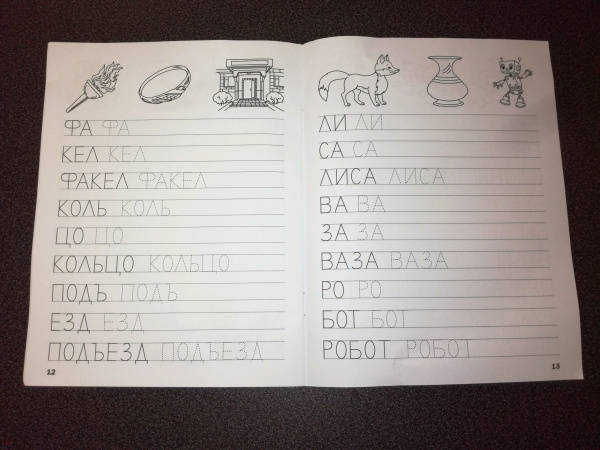 ФА ФА
КЕЛ КЕЛ
ФАКЕЛ ФАКЕЛ
КОЛЬ КОЛЬ
ЦО ЦО
КОЛЬЦО КОЛЬЦО
ПОДЪ ПОДЪ
ЕЗД ЕЗД
ПОДЪЕЗД ПОДЪЕЗД
12
ЛИ ЛИ
СА СА
ЛИСА ЛИСА
ВА ВА
ЗА ЗА
ВАЗА ВАЗА
РО РО
БОТ БОТ
РОБОТ РОБОТ
13